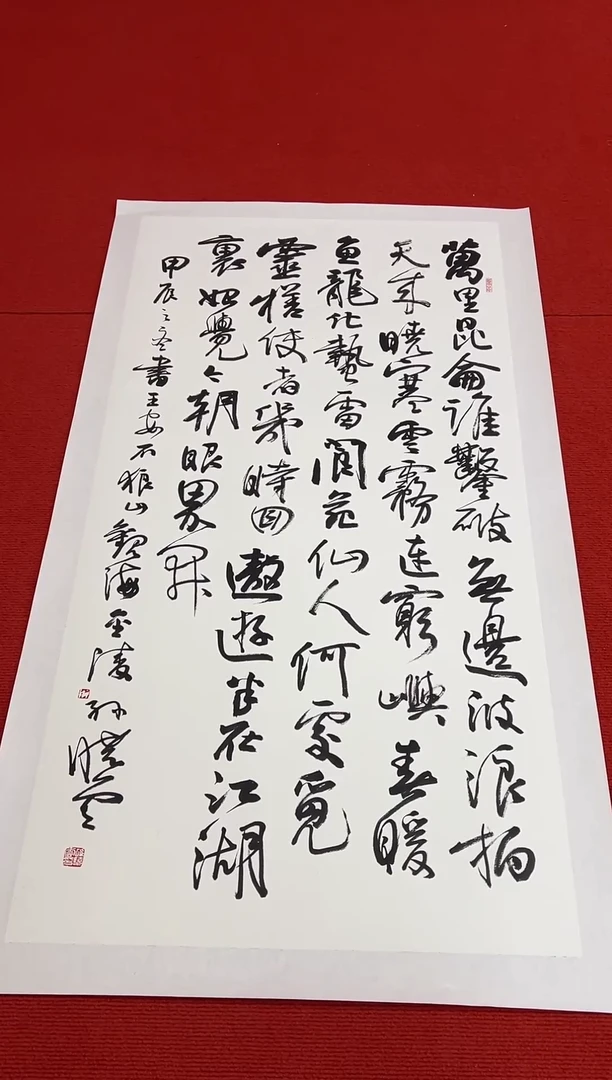 萬里昆侖誰鑿破無邊波浪拍
天來曉寒雲霧連窮嶼春暖
魚龍化蟄雷閬苑仙人何處覓
靈槎使者幾時回遨遊半在江湖
裏始覺今朝眼界開
甲辰之冬書王安石狼山觀海金陵孫曉雲